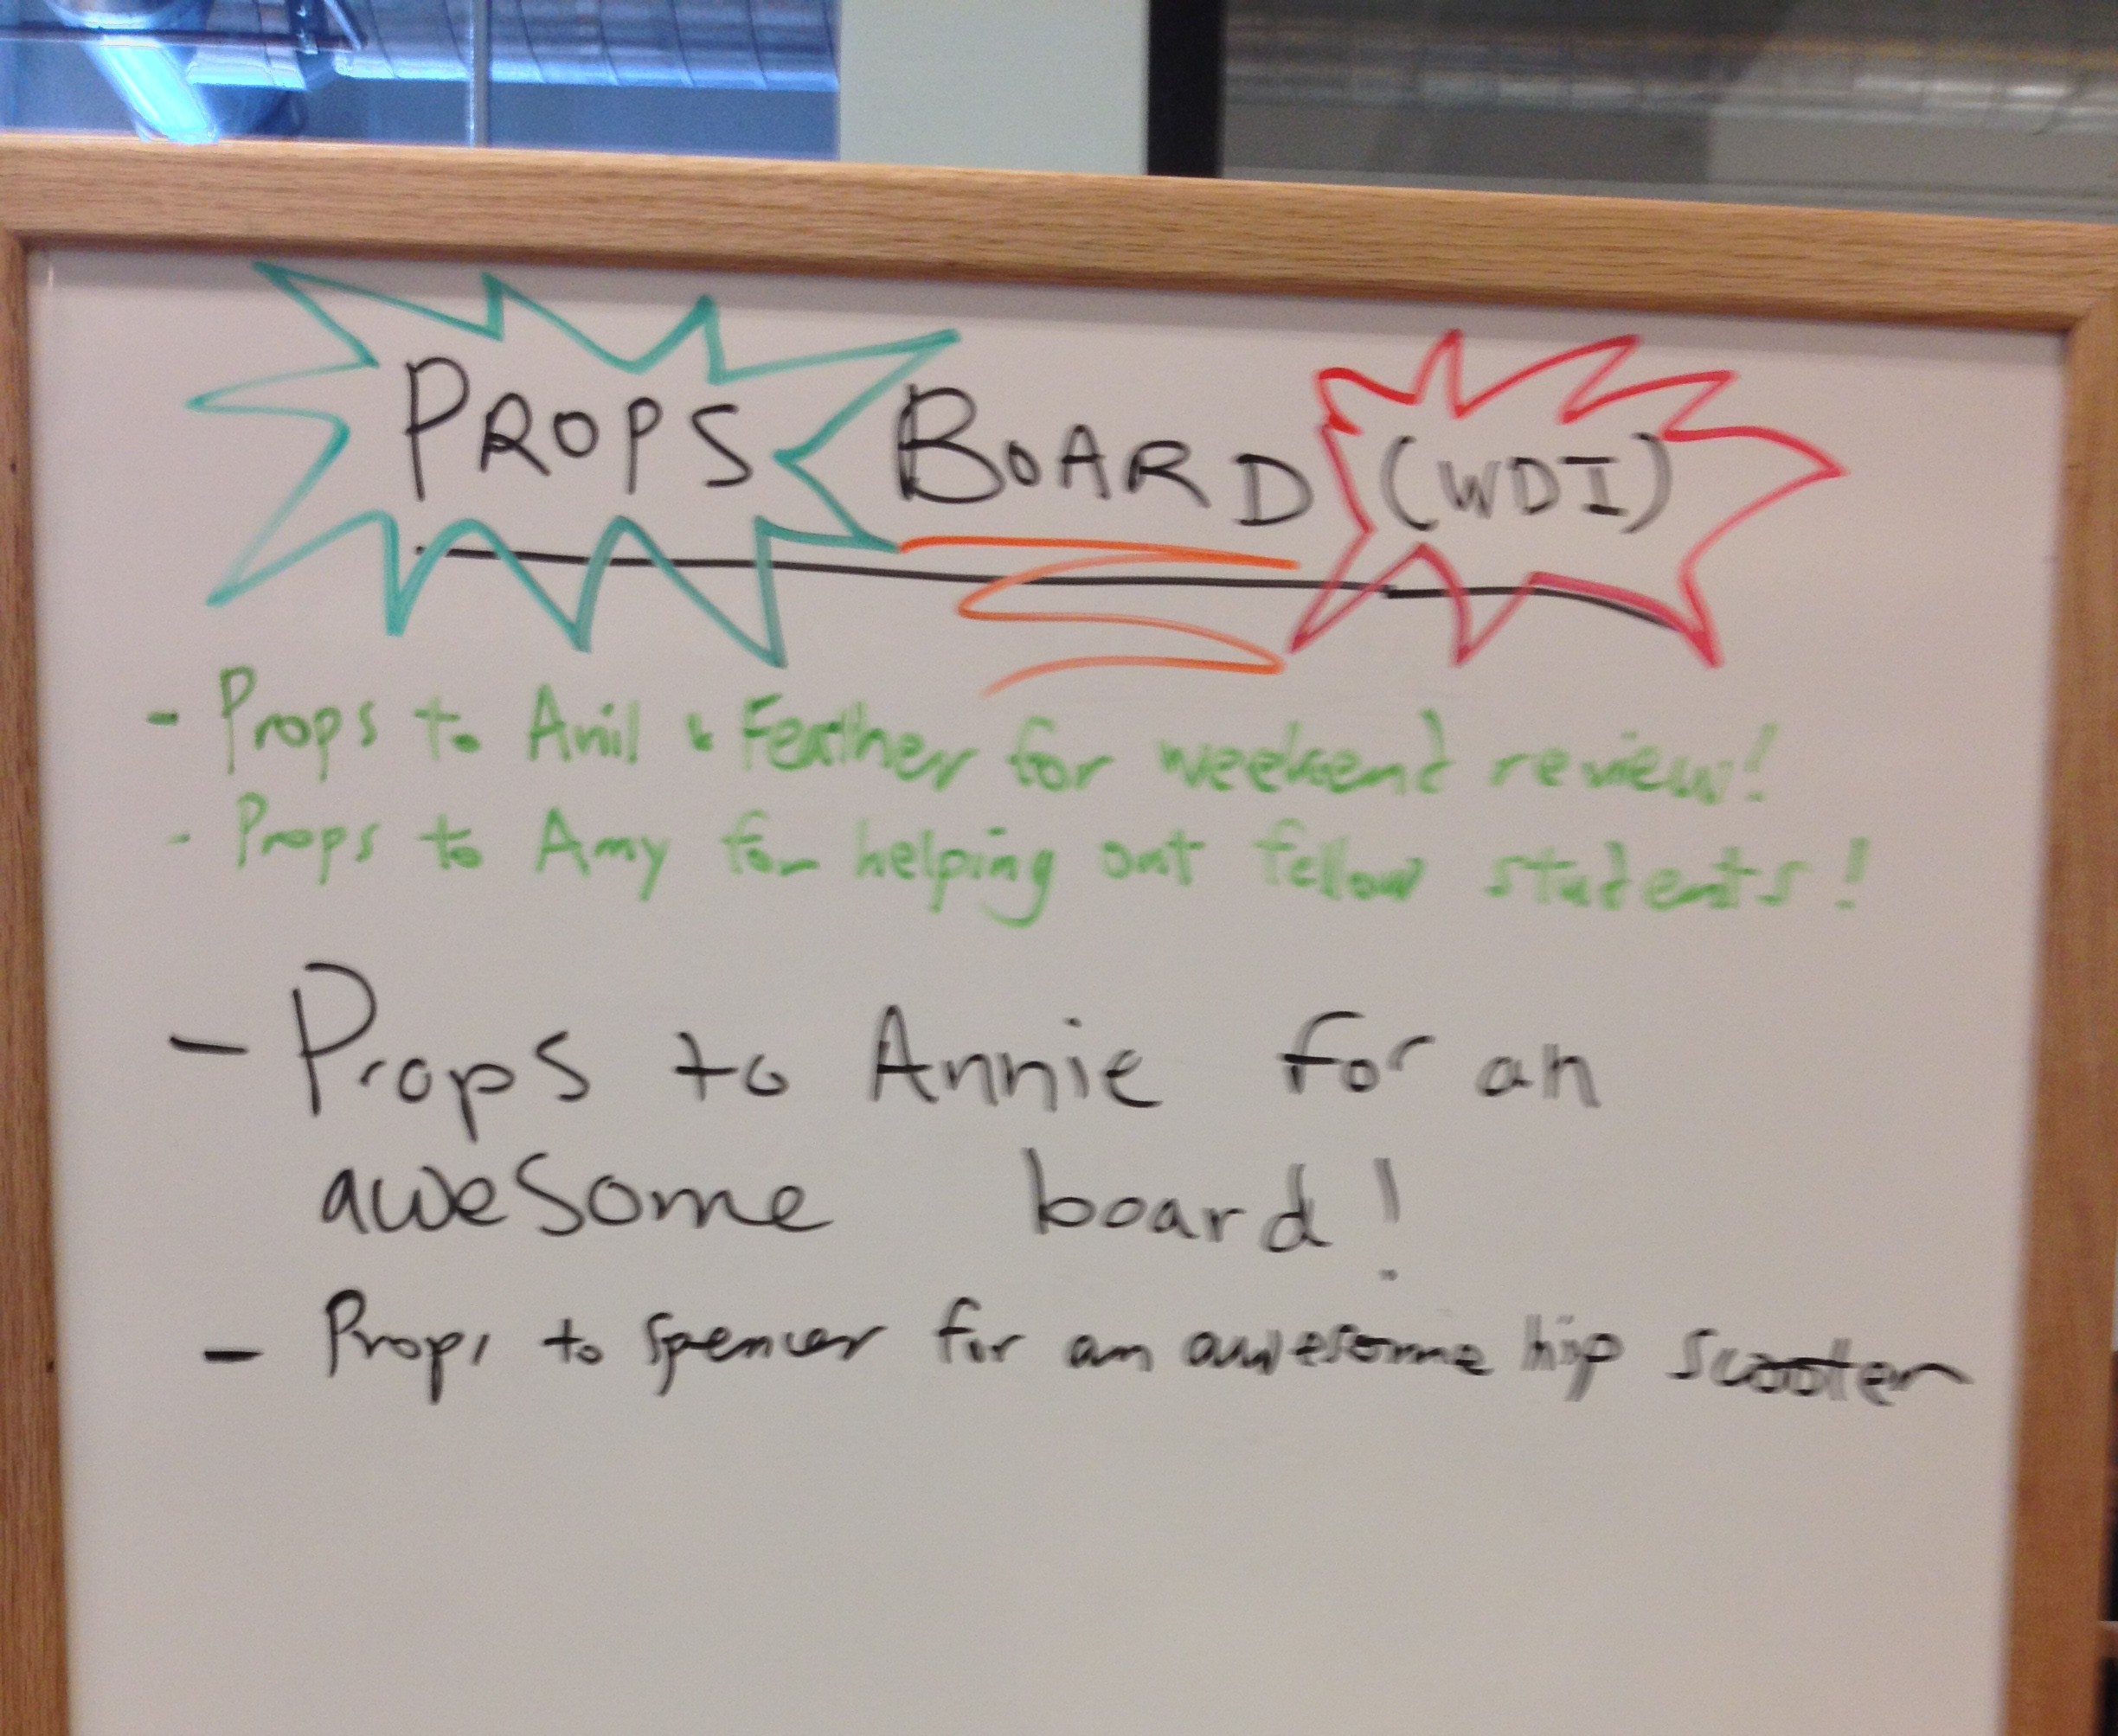 PROPS BOARD (WDI)
- Props to Anil & Feather for weekend review!
- Props to Amy for helping out fellow students!
- Props to Annie for an
awesome board!
- Props to Spencer for an awesome hip scooter